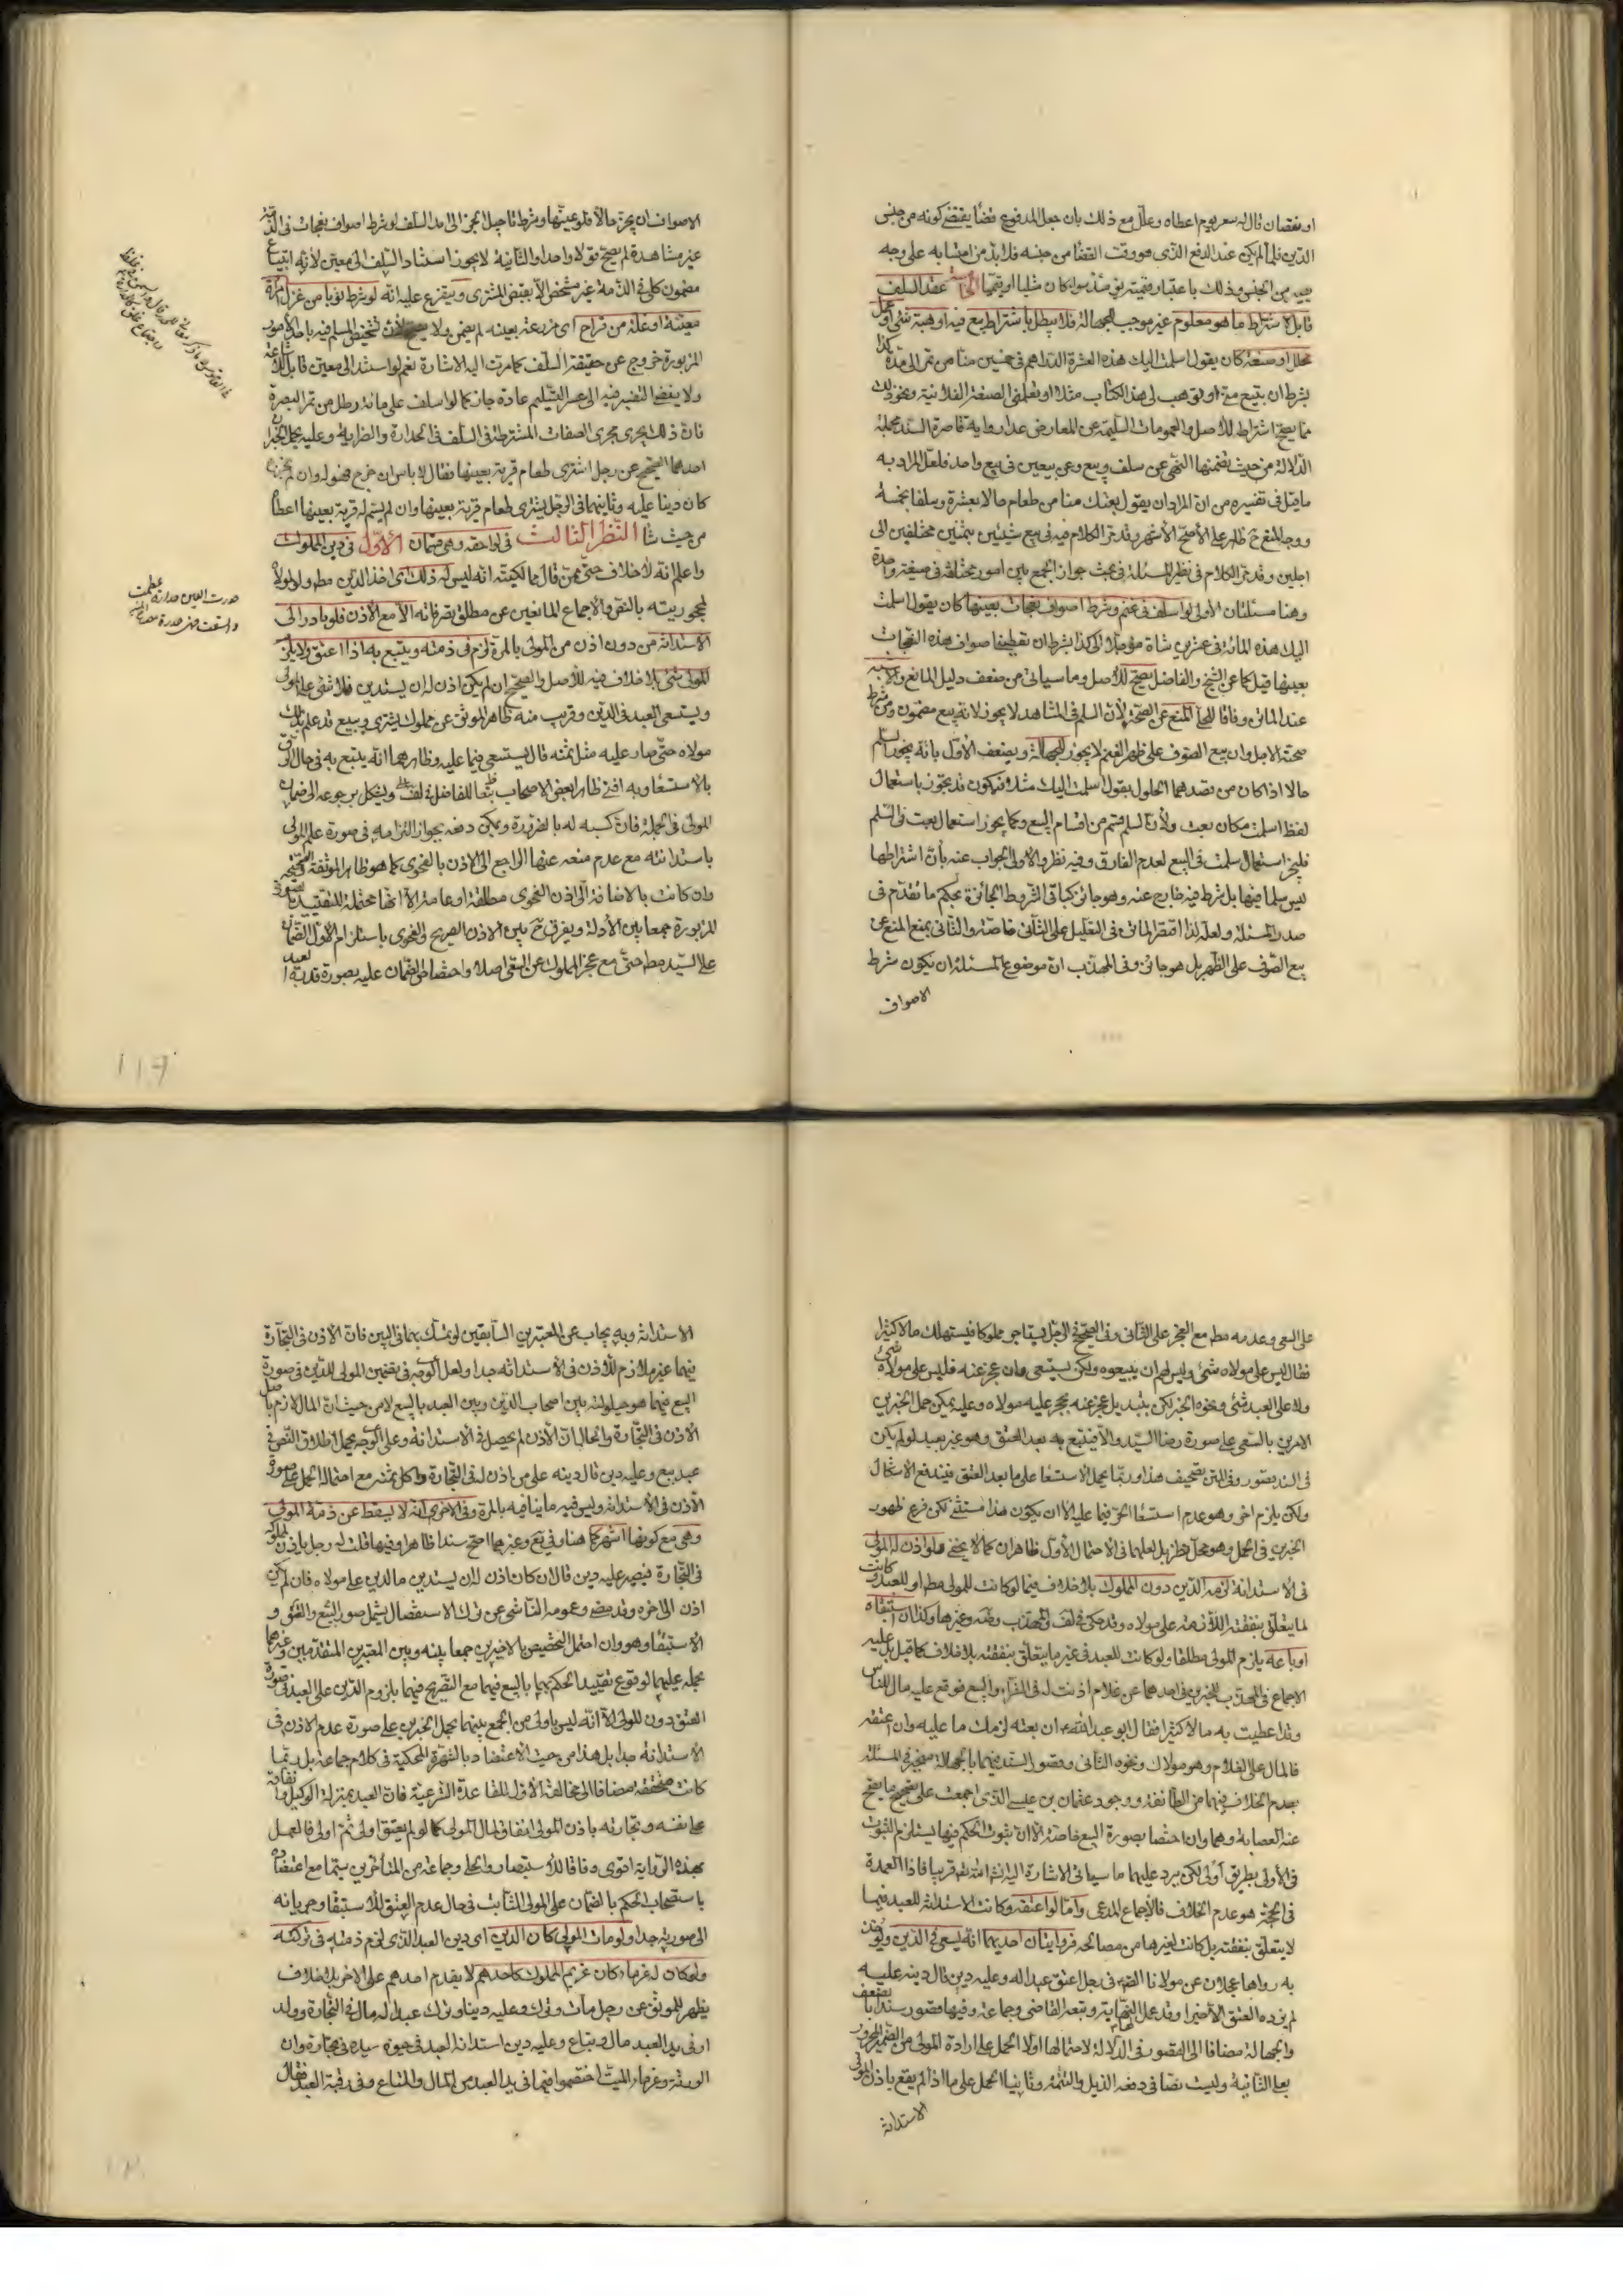 او نقصان قال له سعر يوم اعطاه وعلل مع ذلك بان جعل المدفوع قضاً يقتضى كونه من جنس
الدين فلما لم يكن عند الدفع الذى هو وقت القضا من جنسه فلا بد من احتسابه على وجه
يصير من الجنس وذلك باعتبار قيمته يومئذ سوا كان مثليا او قيميا عقد السلف
قابل لاشتراط ما هو معلوم غير موجب للجهالة فلا يبطل باشتراط بيع فيه او هبة شئ او عمل
محلل او صنعة كان يقول اسلمت اليك هذه العشرة الدراهم فى خمسين منا من تمر الى مدة كذا
بشرط ان تبيع منى او توهب لى هذا الكتاب مثلا او تعلمنى الصنعة الفلانية ونحو ذلك
مما يصح اشتراطه للاصل والعمومات السليمة عن المعارض عدا رواية قاصرة السند مجملة
الدلالة من حيث تضمنها النهى عن سلف وبيع وعن بيعين فى بيع واحد فلعل المراد به
ما قيل فى تفسيره من ان المراد ان يقول بعتك منا من طعام حالا بعشرة وسلفا بخمسة
ووجه المنع ح ظاهر على الاصح الاشهر وقد مر الكلام فيه فى بيع شيئين بثمنين مختلفين الى
اجلين وقد مر الكلام فى نظير المسئلة فى بحث جواز الجمع بين امور مختلفة فى صيغة واحدة
وهنا مسئلتان الاولى لو اسلف فى غنم وشرط اصواف نعجات بعينها كان يقول اسلمت
اليك هذه المائة فى عشرين شاة مؤجلا الى كذا بشرط ان تعطينى اصواف هذه النعجات
بعينها قيل كما عن الشيخ والفاضل يصح للاصل وما سياتى من ضعف دليل المانع والاشبه
عند الماتن وفاقا للحلى المنع عن الصحة لان السلم فى المشاهد لا يجوز لانه بيع مضمون ومن شرط
صحته الاجل وان بيع الصوف على ظهر الغنم لا يجوز للجهالة ويضعف الاول بانه يجوز السلم
حالا اذا كان من قصدهما الحلول يقول اسلمت اليك مثلا فيكون قد تجوز باستعمال
لفظ اسلمت مكان بعت ولان السلم قسم من اقسام البيع وكما يجوز استعمال بعت فى السلم
فليجز استعمال سلمت فى البيع لعدم الفارق وفيه نظر والاولى الجواب عنه بان اشتراطها
ليس سلما فيها بل شرط فيه خارج عنه وهو جائز كباقى الشروط الجائزة بحكم ما تقدم فى
صدر المسئلة ولعله لذا اقتصر الماتن فى التعليل على الثانى خاصة والثانى بمنع المنع عن
بيع الصوف على الظهر بل هو جائز وفى المهذب ان موضوع المسئلة ان يكون شرط
الاصواف
الاصواف ان يجز حالا فلو عينها وشرط تاجيل الجز الى امد السلف لو شرط اصواف نعجات فى الذمة
غير مشاهدة لم يصح قولا واحدا والثانية لا يجوز اسناد السلف الى معين لانه ابتياع
مضمون كلى فى الذمة غير مشخص الا بقبض المشترى ويتفرع عليه انه لو شرط ثوبا من غزل امراة
معينة او غلة من قراح اى مزرعة بعينه لم يضمن ولا يصح لان تشخيص المسلم فيه باحد الامور
المزبورة خروج عن حقيقة السلف كما مرت اليه الاشارة نعم لو استند الى معين قابل للاشاعة
ولا يفضى التعيين فيه الى عسر التسليم عادة جاز كما لو اسلف على مائة رطل من تمر البصرة
فان ذلك يجرى مجرى الصفات المشترطة فى السلف فى الحدارة والصرابة وعليه يحمل الخبران
احدهما الصحيح عن رجل اشترى طعام قرية بعينها فقال لا باس ان خرج فهو له وان لم يخرج
كان دينا عليه وثانيهما فى الرجل يشترى طعام قرية بعينها وان لم يسم له قرية بعينها اعطاه
من حيث شا النظر الثالث فى لواحقه وهى قسمان الاول فى دين المملوك
واعلم انه لا خلاف حتى ممن قال بمالكيته انه ليس له ذلك اى اخذ الدين مطم ولو لمولاه
لمحجوريته بالنص والاجماع المانعين عن مطلق تصرفاته الا مع الاذن فلو بادر الى
الاستدانة من دون اذن من المولى بالمرة لزم فى ذمته ويتبع به اذا اعتق ولا يلزم
المولى شئ بلا خلاف فيه للاصل والصحيح ان لم يكن اذن له ان يستدين فلا شئ على المولى
ويستسعى العبد فى الدين وقريب منه ظاهر الموثق عن مملوك يشترى ويبيع قد علم بذلك
مولاه حتى صار عليه مثل ثمنه قال يستسعى فيما عليه وظاهرهما انه يتبع به فى حال الرق
بالاستسعا وبه افتى ظاهرا بعض الاصحاب تبعا للفاضل فى لف ويشكل برجوعه الى ضمان
المولى فى الجملة فان كسبه له بالضرورة ويمكن دفعه بجواز التزامه فى صورة علم المولى
باستدانته مع عدم منعه عنها الراجع الى الاذن بالفحوى كما هو ظاهر الموثقة والصحيحة
وان كانت بالاضافة الى اذن الفحوى مطلقة او عامة الا انها محتملة للتقييد بالموثقة
المزبورة جمعا بين الادلة ويفرق ح بين الاذن الصريح والفحوى باستلزام الاول الضمان
على السيد مطم حتى مع عجز المملوك عن السعى اصلا واختصاص الضمان عليه بصورة قدرة العبد
على السعى وعدمه مطم مع العجز على الثانى وفى الصحيح فى الرجل يستاجر مملوكا فيستهلك مالا كثيرا
فقال ليس على مولاه شئ وليس لهم ان يبيعوه ولكن يستسعى وان عجز عنه فليس على مولاه شئ
ولا على العبد شئ ونحوه الخبر لكن بتبديل عجز عنه بحجر عليه مولاه وعليه يمكن حمل الخبرين
الامرين بالسعى على صورة رضا السيد والا فيتبع به بعد العتق وهو غير بعيد لو لم يكن
فى السند قصور وفى المتن تصحيف هذا وربما يحمل الاستسعا على ما بعد العتق فيندفع الاشكال
ولكن يلزم اخر وهو عدم استسعا الحر فيما عليه الا ان يكون هذا مستثنى لكن فرع ظهور
الخبرين فى الحمل وهو محل نظر بل لعلهما فى الاحتمال الاول ظاهران كما لا يخفى فلو اذن له المولى
فى الاستدانة لزمه الدين دون المملوك بلا خلاف فيما لو كانت للمولى مطم او للعبد وكانت
لما يتعلق بنفقته اللازمة على مولاه وقد حكى فى لف والمهذب وغيرها وكذا ان استبقاه
او باعه يلزم المولى مطلقا ولو كانت للعبد فى غير ما يتعلق بنفقته بلا خلاف كما قيل بل عليه
الاجماع فى المهذب للخبرين فى احدهما عن غلام اذنت له فى الشراء والبيع فوقع عليه مال للناس
وقد اعطيت به مالا كثيرا فقال ابو عبد الله ان بعته لزمك ما عليه وان اعتقته
فالمال على الغلام وهو مولاك ونحوه الثانى وقصور السند فيهما بالجهالة منجبر فى المسئلة
بعدم الخلاف فيهما من الطائفة ووجود عثمان بن عيسى الذى اجمعت على تصحيح ما يصح
عنه العصابة وهما وان اختصا بصورة البيع خاصة الا ان ثبوت الحكم فيها يستلزم الثبوت
فى الاولى بطريق اولى لكن يرد عليهما ما سياتى الاشارة اليه انشا الله تعم قريبا فاذا العمدة
فى الحجة هو عدم الخلاف فالاجماع المدعى واما لو اعتقه وكانت الاستدانة للعبد فيما
لا يتعلق بنفقته بل كانت لغيرها من مصالحه فروايتان احديهما انه يسعى فى الدين ويؤخذ
به رواها عجلان عن مولانا الصادق فى رجل اعتق عبدا له وعليه دين قال دينه عليه
لم يزده العتق الا خيرا وقد عمل بها النهاية وتبعه القاضى وجماعة وفيها قصور سندا بالضعف
والجهالة مضافا الى القصور فى الدلالة لاحتمالها اولا الحمل على ارادة المولى من الضمير المجرور
بعلى الثانية وليست نصا فى دفعه الذيل والتتمة وثانيا الحمل على ما اذا لم يقع باذن المولى
الاستدانة
الاستدانة وبه يجاب عن المعتبرين السابقين لو تمسك بهما فى البين فان الاذن فى التجارة
فيهما غير ملازم للاذن فى الاستدانة جدا ولعل الوجه فى تضمين المولى للدين فى صورة
البيع فيهما هو حيلولته بين اصحاب الدين وبين العبد بالبيع لا من حيث ان المال لازم باصل
الاذن فى التجارة والحال ان الاذن لم يحصل فى الاستدانة وعلى الوجه يحمل اطلاق النص فى
عبد بيع وعليه دين قال دينه على من اذن له فى التجارة واكل ثمنه مع احتماله الحمل على صورة
الاذن فى الاستدانة وليس فيه ما ينافيه بالمرة وفى الاخرى انه لا يسقط عن ذمة المولى
وهى مع كونها اشهر كما هنا وفى يع وغيرهما اصح سندا ظاهرا وفيها قلت له رجل ياذن لمملوكه
فى التجارة فيصير عليه دين قال ان كان اذن له ان يستدين فالدين على مولاه فان لم يكن
اذن الى اخره وقد مضى وعمومه الناشى عن ترك الاستفصال يشمل صور البيع والعتق و
الاستبقا وهو وان احتمل التخصيص بالاخيرين جمعا بينه وبين المعتبرين المتقدمين وغيرهما
بحمله عليهما لوقوع تقييد الحكم بهما بالبيع فيهما مع التصريح فيهما بلزوم الدين على العبد فى صورة
العتق دون المولى الا انه ليس باولى من الجمع بينهما بحمل الخبرين على صورة عدم الاذن فى
الاستدانة جدا بل هذا من حيث الاعتضاد بالشهرة المحكية فى كلام جماعة بل ربما
كانت متحققة مضافا الى مخالفة الاول للقاعدة الشرعية فان العبد بمنزلة الوكيل وانفاقه
على نفسه وتجارته باذن المولى انفاق لمال المولى كما لو لم يعتق اولى ثم اولى فالعمل
بهذه الرواية اقوى وفاقا للاستبصار والحلى وجماعة من المتاخرين سيما مع اعتضاده
باستصحاب الحكم بالضمان على المولى الثابت فى حال عدم العتق للاستبقا وجريانه
الى صورته جدا ولو مات المولى كان الدين اى دين العبد الذى لزم ذمته فى تركته
ولو كان له غرماء كان غريم المملوك كاحدهم لا يقدم احدهم على الاخر بلا خلاف
يظهر للموثق عن رجل مات وترك وعليه دينا وترك عبدا له مال فى التجارة وولد
او فى يد العبد مال ومتاع وعليه دين استدانه العبد فى حيوة سيده فى تجارة وان
الورثة وغرماء الميت اختصموا فيما فى يد العبد من المال والمتاع وفى رقبة العبد فقال